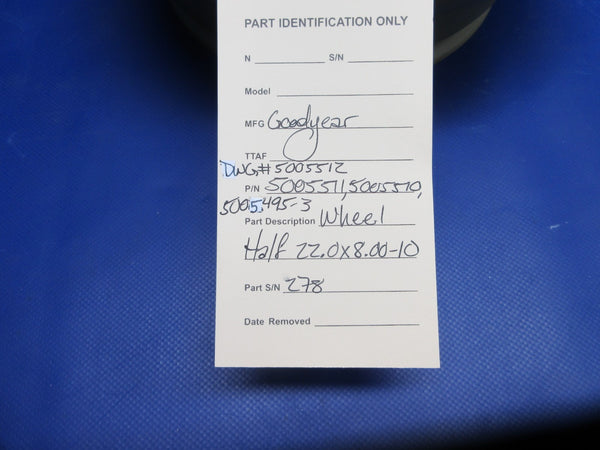 PART IDENTIFICATION ONLY
N S/N
Model
MFG Goodyear
TTAF
DWG# 5005512
P/N 5005511, 5005510,
5005495-3
Part Description Wheel
Half 22.0x8.00-10
Part S/N 278
Date Removed